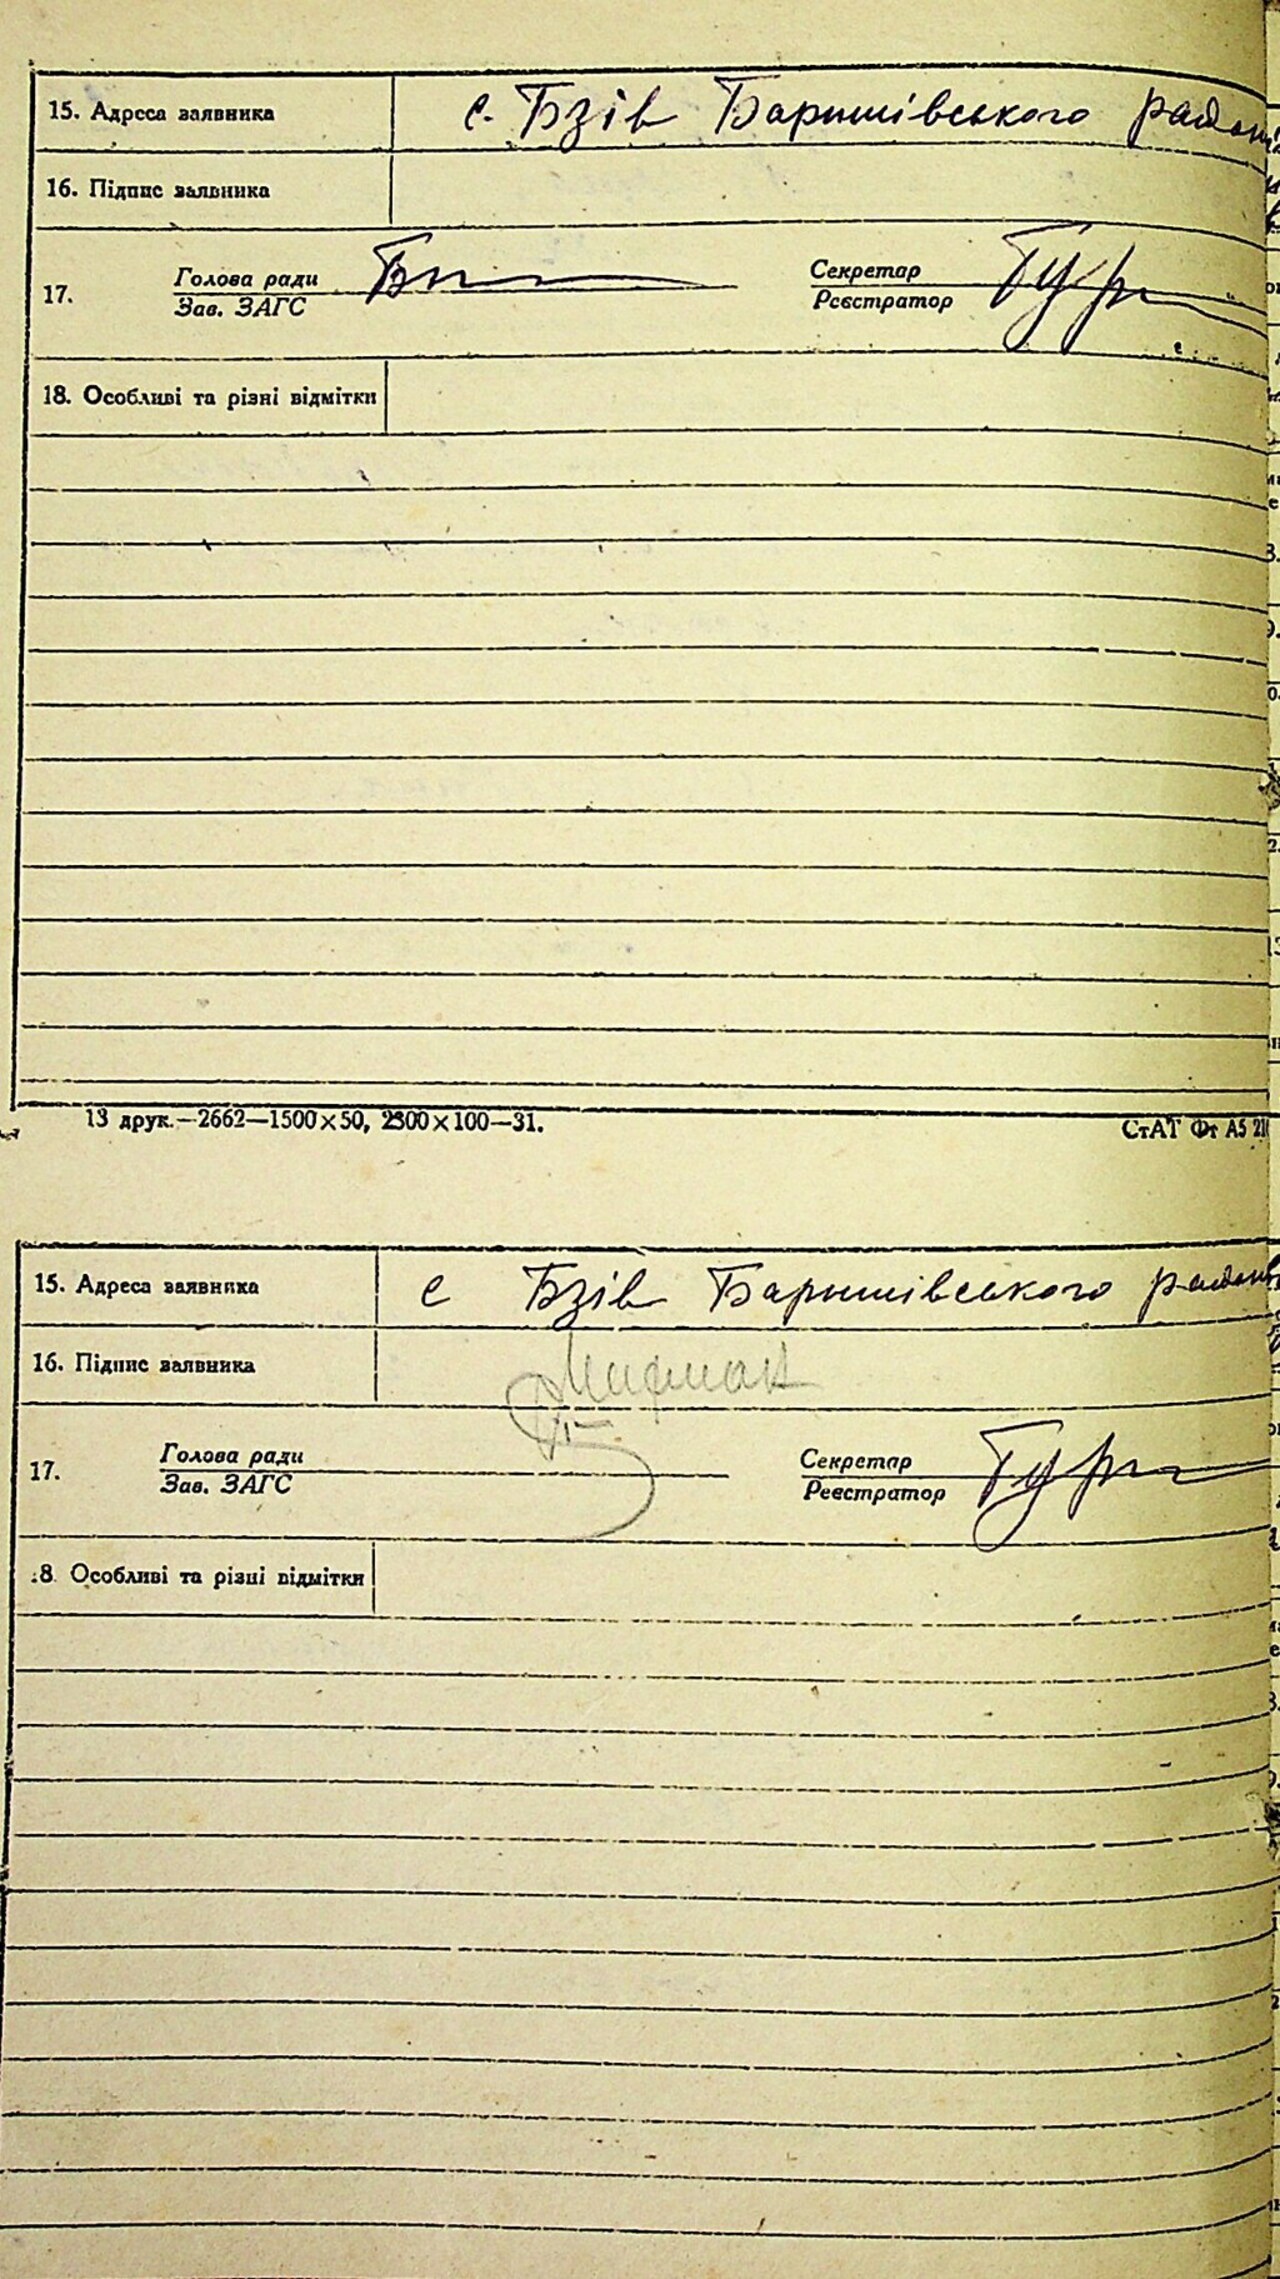 15. Адреса заявника с. Бзів Баришівського району
16. Підпис заявника
17. Голова ради Секретар
Зав. ЗАГС Реєстратор
18. Особливі та різні відмітки
13 друк.—2662—1500×50, 2300×100—31.
СтАТ Фт А5 210
15. Адреса заявника с Бзів Баришівського району
16. Підпис заявника
17. Голова ради Секретар
Зав. ЗАГС Реєстратор
8 Особливі та різні відмітки